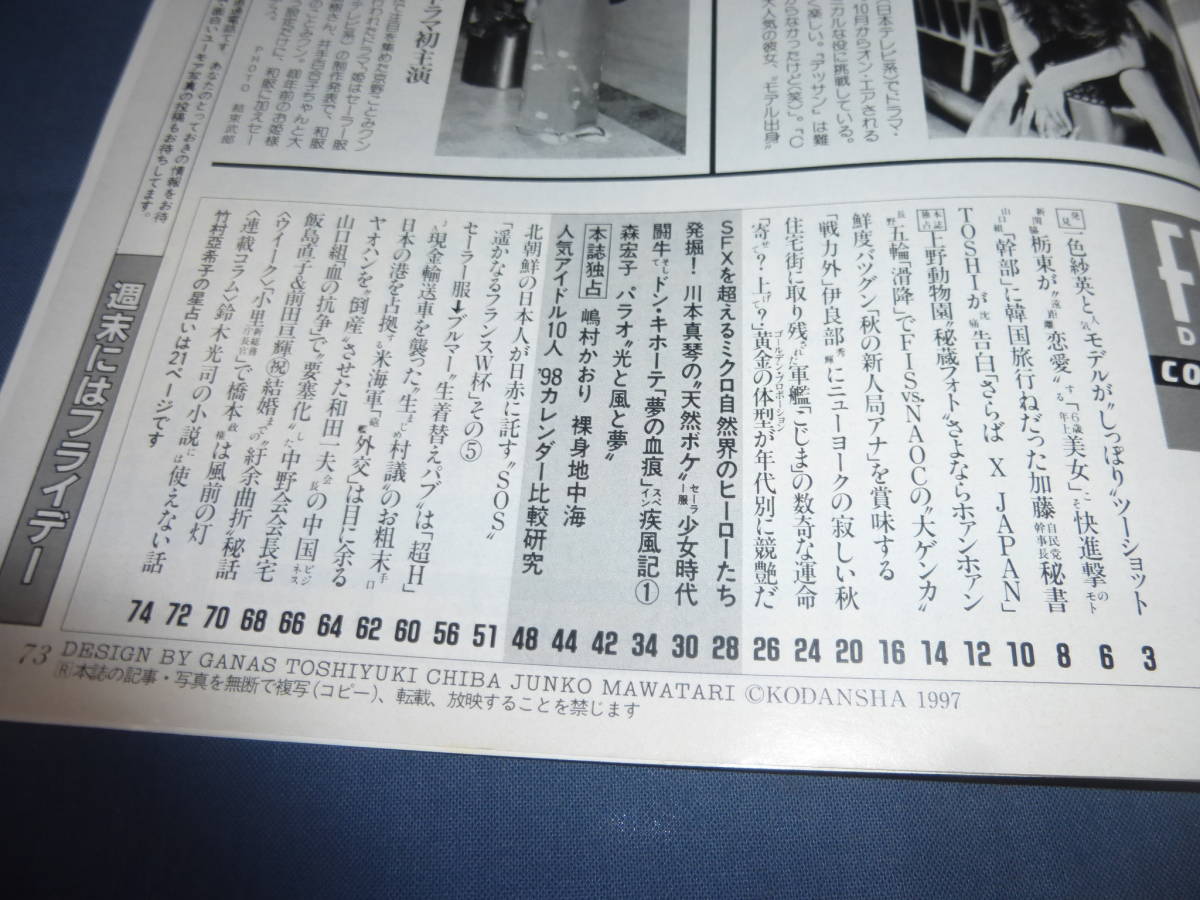 日本テレビ系)でドラマ・
10月からオン・エアされる
ミカルな役に挑戦している。
く楽しい。『デッサン』は難
らなかったけど(笑)。『C
大人気の彼女、"モデル出身"
ラマ初主演
PHOTO 結束武郎
週末にはフライデー
CO
発見 一色紗英と人気モデルが"しっぽり"ツーショット 3
新関脇 栃東が"遠距離恋愛"する「6歳年上美女」こそ快進撃のモト 6
山口組「幹部」に韓国旅行ねだった加藤自民党幹事長秘書 8
TOSHIが沈痛告白「さらば X JAPAN」 10
本誌独占 上野動物園"秘蔵フォト"さよならホアンホアン 12
長野五輪「滑降」でFIS vs. NAOCの"大ゲンカ" 14
鮮度バツグン「秋の新人局アナ」を賞味する 16
「戦力外」伊良部秀輝にニューヨークの寂しい秋 20
住宅街に取り残された軍艦「こじま」の数奇な運命 24
「寄せて?上げて?」黄金の体型ゴールデンプロポーションが年代別に競艶だ 26
SFXを超えるミクロ自然界のヒーローたち 28
発掘! 川本真琴の"天然ボケ"セーラー服少女時代 30
闘牛せしドン・キホーテ「夢の血痕」スペイン疾風記① 34
森宏子 パラオ"光と風と夢" 42
本誌独占 嶋村かおり 裸身地中海 44
人気アイドル10人 '98カレンダー比較研究 48
北朝鮮の日本人が日赤に託す"SOS" 51
「遥かなるフランスW杯」その⑤ 56
セーラー服→ブルマー"生着替えパブ"は「超H」 60
現金輸送車を襲った"生まじめ村議"のお粗末手口 62
日本の港を占拠する米海軍「砲艦外交」は目に余る 64
ヤオハンを"倒産"させた和田一夫会長の中国ビジネス 66
山口組"血の抗争"で"要塞化"した中野会会長宅 68
飯島直子&前田亘輝㊗結婚までの"紆余曲折"秘話 70
〈ウイーク〉"小里新総務庁長官"で橋本政権は風前の灯 72
〈連載コラム〉鈴木光司の小説には使えない話 74
竹村亞希子の星占いは21ページです
73 DESIGN BY GANAS TOSHIYUKI CHIBA JUNKO MAWATARI ©KODANSHA 1997
Ⓡ本誌の記事・写真を無断で複写(コピー)、転載、放映することを禁じます